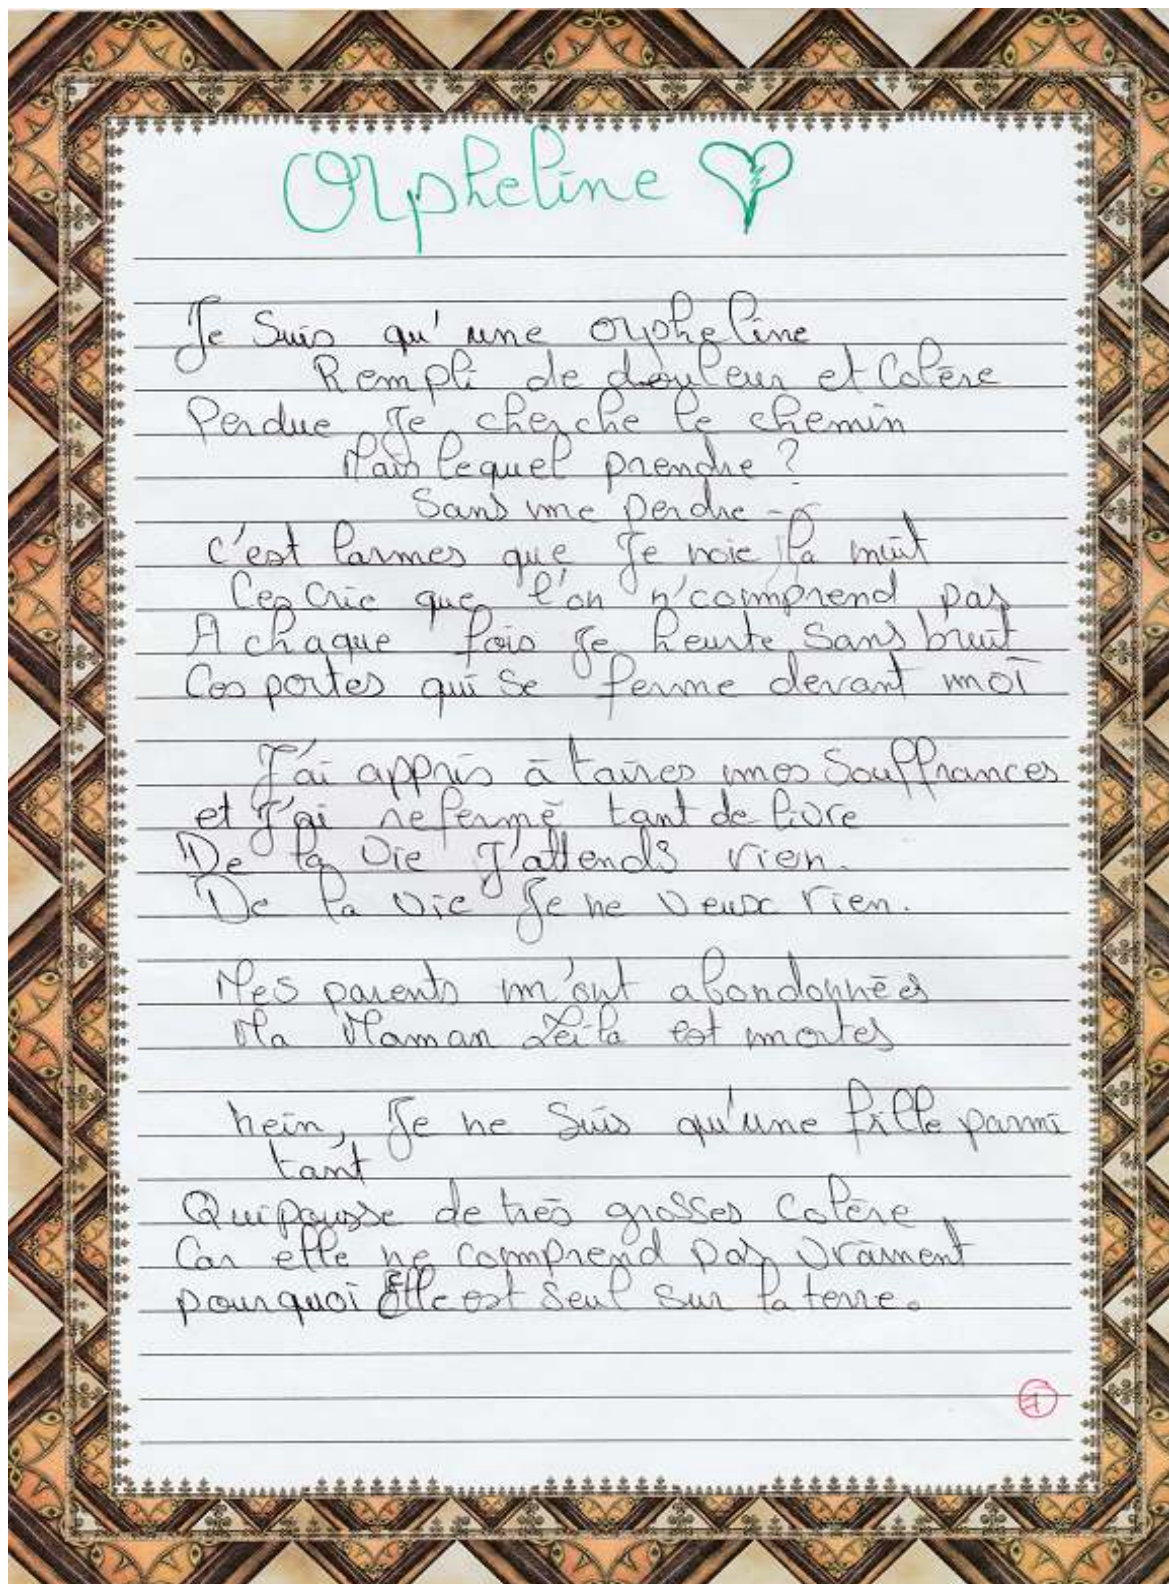 Orpheline
Je Suis qu'une orpheline
Rempli de douleur et Colère
Perdue Je cherche le chemin
Mais lequel prendre ?
Sans me perdre --
C'est larmes que Je noie la nuit
Ces Crie que l'on n'comprend pas
A chaque fois Je heurte Sans bruit
Ces portes qui se ferme devant moi
J'ai appris à taires mes Souffrances
et J'ai refermé tant de livre
De la Vie J'attends rien.
De la vie Je ne veux rien.
Mes parents m'ont abondonnées
Ma Maman Leïla est mortes
hein, Je ne Suis qu'une fille parmi
tant
Qui pousse de très grosses Colère
Car elle ne comprend pas vraiment
pourquoi Elle est Seul sur la terre.